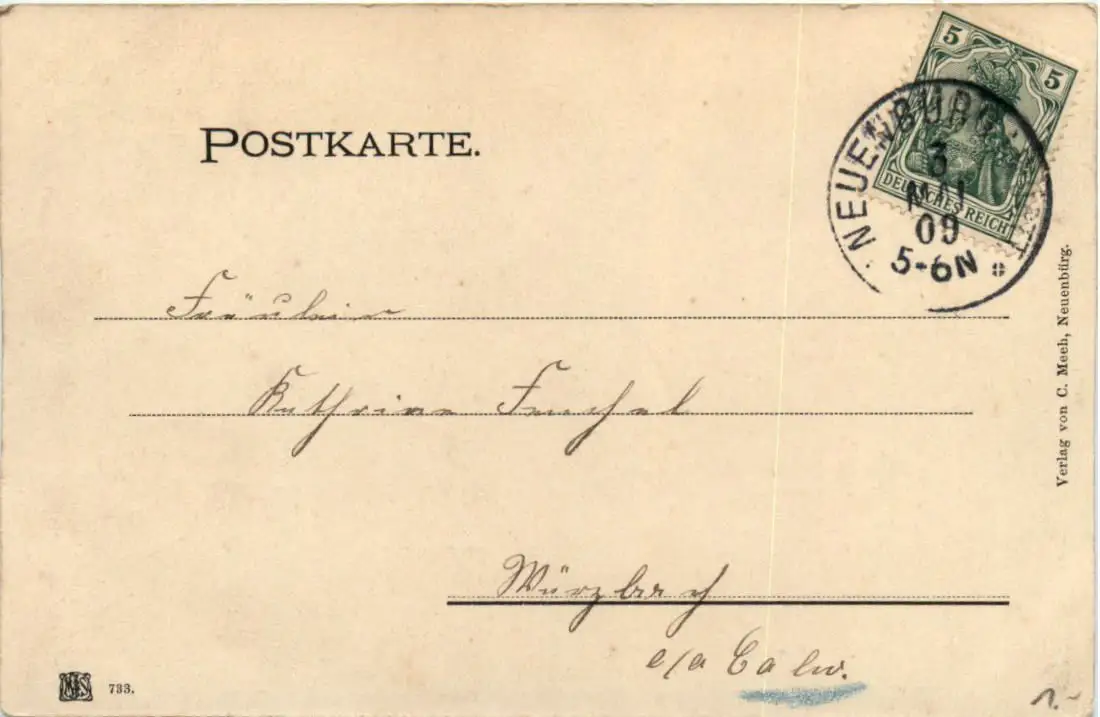 POSTKARTE.
5 5
DEUTSCHES REICH
NEUENBÜRG
3
MAI
09
5-6N
Fräulein
Kathrine
Würzbach
Calw.
Verlag von C. Meeh, Neuenbürg.
733.
1.-